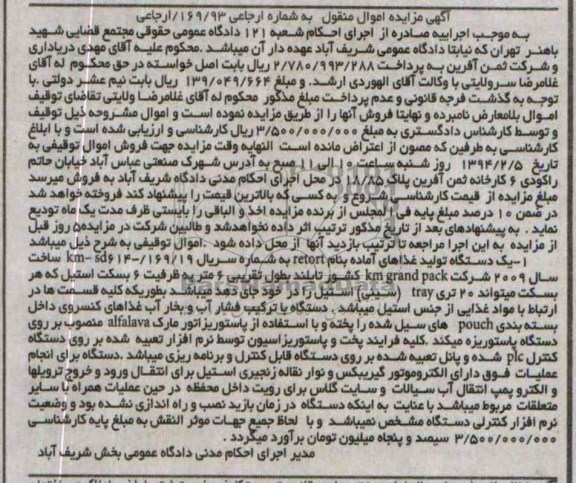 آگهی مزایده اموال منقول به شماره ارجاعی ۱۶۹/۹۳/ارجاعی
به موجب اجراییه صادره از اجرای احکام شعبه ۱۲۱ دادگاه عمومی حقوقی مجتمع قضایی شهید
باهنر تهران که نیابتا دادگاه عمومی شریف آباد عهده دار آن میباشد .محکوم علیه آقای مهدی دریاداری
و شرکت ثمن آفرین به پرداخت ۲/۷۸۰/۹۹۳/۲۸۸ ریال بابت اصل خواسته در حق محکوم له آقای
غلامرضا سرولایتی با وکالت آقای الهوردی ارشد. و مبلغ ۱۳۹/۰۴۹/۶۶۴ ریال بابت نیم عشر دولتی .با
توجه به گذشت فرجه قانونی و عدم پرداخت مبلغ مذکور محکوم له آقای غلامرضا ولایتی تقاضای توقیف
اموال بلامعارض نامبرده و نهایتا فروش آنها را از طریق مزایده نموده است و اموال مشروحه ذیل توقیف
و توسط کارشناس دادگستری به مبلغ ۳/۵۰۰/۰۰۰/۰۰۰ ریال کارشناسی و ارزیابی شده است و با ابلاغ
کارشناسی به طرفین که مصون از اعتراض مانده است النهایه وقت مزایده جهت فروش اموال توقیفی به
تاریخ ۱۳۹۴/۲/۵ روز شنبه ساعت ۱۰ الی ۱۱ صبح به آدرس شهرک صنعتی عباس آباد خیابان حاتم
راکودی ۶ کارخانه ثمن آفرین پلاک ۱۸/۵ در محل اجرای احکام مدنی دادگاه شریف آباد به فروش میرسد
مبلغ مزایده از قیمت کارشناسی شروع و به کسی که بالاترین قیمت را پیشنهاد کند فروخته خواهد شد
در ضمن ۱۰ درصد مبلغ پایه فی المجلس از برنده مزایده اخذ و الباقی را بایستی ظرف مدت یک ماه تودیع
نماید . به پیشنهادهای بعد از تاریخ مذکور ترتیب اثر داده نخواهدشد و طالبین شرکت در مزایده۵ روز قبل
از مزایده به این اجرا مراجعه تا ترتیب بازدید آنها از محل داده شود .اموال توقیفی به شرح ذیل میباشد
۱-یک دستگاه تولید غذاهای آماده بنام retort به شماره سریال km- sd۶۱۴-/۱۶۹/۱۹ ساخت
سال ۲۰۰۹ شرکت km grand pack کشور تایلند بطول تقریبی ۶ متر به ظرفیت ۶ بسکت استیل که هر
بسکت میتواند ۲۰ تری tray (سینی) استیل را در خود جای دهد میباشد بطوریکه کلیه قسمت ها در
ارتباط با مواد غذایی از جنس استیل میباشد . دستگاه با ترکیب فشار آب و بخار آب غذاهای کنسروی داخل
بسته بندی pouch های سیل شده را پخته و با استفاده از پاستوریزاتور مارک alfalava منصوب بر روی
دستگاه پاستوریزه میکند .کلیه فرایند پخت و پاستوریزاسیون توسط نرم افزار تعبیه شده بر روی دستگاه
کنترل plc شده و پانل تعبیه شده بر روی دستگاه قابل کنترل و برنامه ریزی میباشد .دستگاه برای انجام
عملیات فوق دارای الکتروموتور گیربکس و نوار نقاله زنجیری استیل برای انتقال ورود و خروج ترویلها
و الکترو پمپ انتقال آب سیالات و سایت گلاس برای رویت داخل محفظه در حین عملیات همراه با سایر
متعلقات مربوط میباشد با عنایت به اینکه دستگاه در زمان بازید نصب و راه اندازی نشده بود و وضعیت
نرم افزار کنترلی دستگاه مشخص نمیباشد و با لحاظ جمیع جهات موثر النقش به مبلغ پایه کارشناسی
۳/۵۰۰/۰۰۰/۰۰۰ سیصد و پنجاه میلیون تومان برآورد میگردد .
مدیر اجرای احکام مدنی دادگاه عمومی بخش شریف آباد